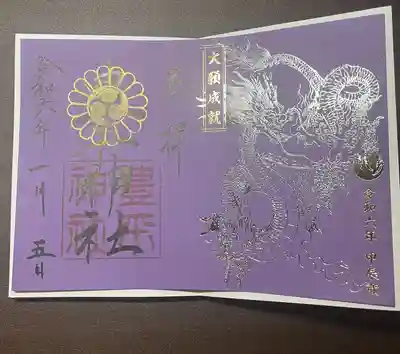 令和六年 甲辰歳
大願成就
奉拝
神社
令和六年 一月 五日